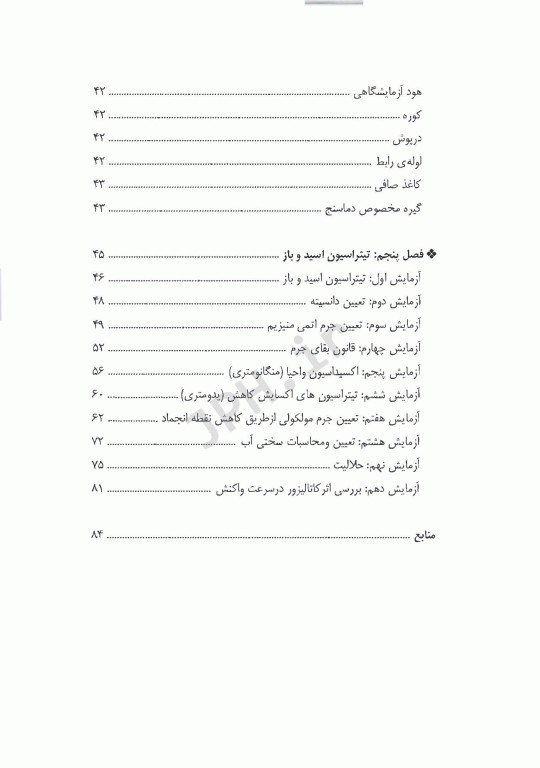 هود آزمایشگاهی ........ ۴۲
کوره ........ ۴۲
درپوش ........ ۴۲
لوله‌ی رابط ........ ۴۲
کاغذ صافی ........ ۴۳
گیره مخصوص دماسنج ........ ۴۳
❖ فصل پنجم: تیتراسیون اسید و باز ........ ۴۵
آزمایش اول: تیتراسیون اسید و باز ........ ۴۶
آزمایش دوم: تعیین دانسیته ........ ۴۸
آزمایش سوم: تعیین جرم اتمی منیزیم ........ ۴۹
آزمایش چهارم: قانون بقای جرم ........ ۵۲
آزمایش پنجم: اکسیداسیون واحیا (منگانومتری) ........ ۵۶
آزمایش ششم: تیتراسیون های اکسایش کاهش (یدومتری) ........ ۶۰
آزمایش هفتم: تعیین جرم مولکولی ازطریق کاهش نقطه انجماد ........ ۶۲
آزمایش هشتم: تعیین ومحاسبات سختی آب ........ ۷۲
آزمایش نهم: حلالیت ........ ۷۵
آزمایش دهم: بررسی اثرکاتالیزور درسرعت واکنش ........ ۸۱
منابع ........ ۸۴
JPH.ir